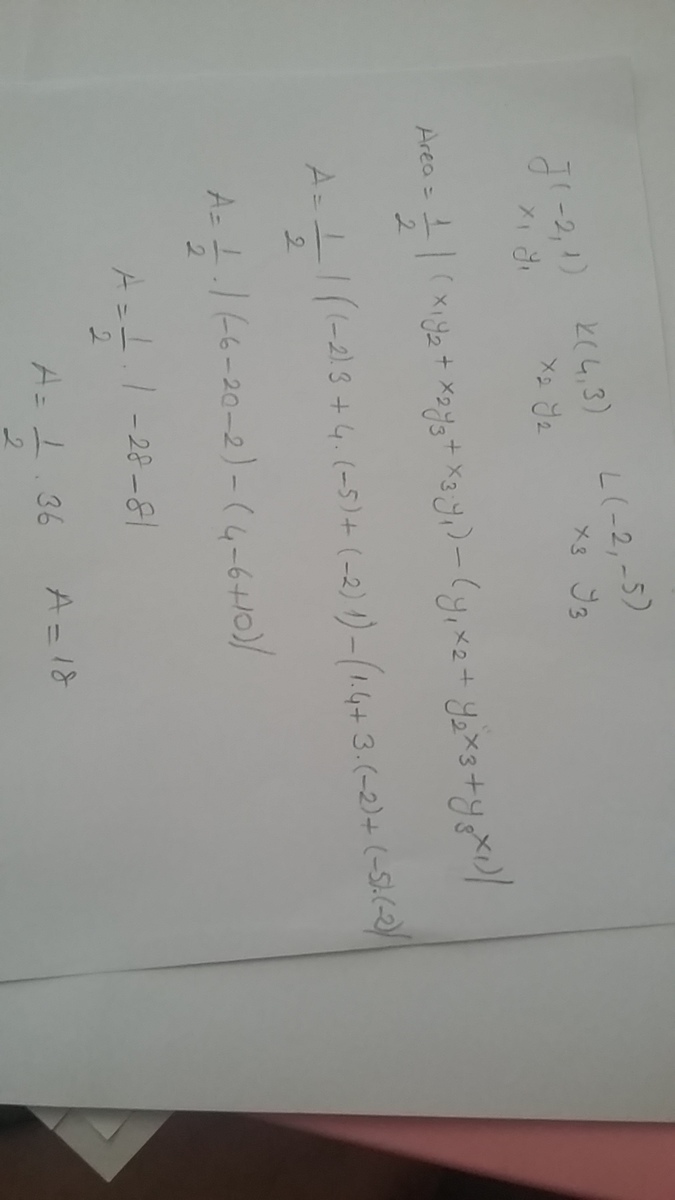 J(-2,1) K(4,3) L(-2,-5)
x₁ y₁ x₂ y₂ x₃ y₃
Area = 1/2 | (x₁y₂ + x₂y₃ + x₃.y₁) - (y₁x₂ + y₂x₃ + y₃x₁)|
A = 1/2 | ((-2).3 + 4.(-5) + (-2)1) - (1.4 + 3.(-2) + (-5).(-2)|
A = 1/2 . | (-6-20-2) - (4-6+10)|
A = 1/2 . | -28-8|
A = 1/2 . 36 A = 18